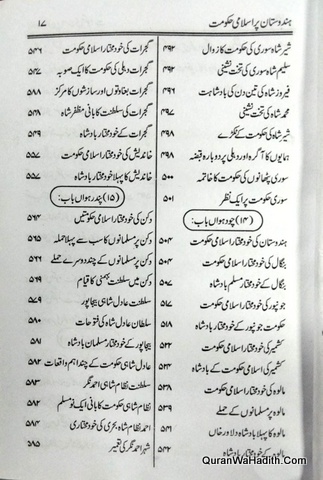 ہندوستان پر اسلامی حکومت ۱۷
شیر شاہ سوری کی حکومت کا زوال ۴۹۲
سلیم شاہ سوری کی تخت نشینی ۴۹۲
فیروز شاہ کی تین دن کی بادشاہت ۴۹۶
محمد شاہ کی تخت نشینی ۴۹۷
شیر شاہ کی حکومت کے ٹکڑے ۴۹۸
ہمایوں کا آگرہ اور دہلی پر دوبارہ قبضہ ۴۹۸
سوری پٹھانوں کی حکومت کا خاتمہ ۵۰۰
سوری حکومت پر ایک نظر ۵۰۱
(۱۴) چودہواں باب:
ہندوستان کی خود مختار اسلامی حکومت
بنگال کی خود مختار اسلامی حکومت ۵۰۴
بنگال کے خود مختار مسلم بادشاہ ۵۰۴
جونپور کی خود مختار اسلامی حکومت ۵۱۷
حکومت جونپور کے خود مختار بادشاہ ۵۱۸
کشمیر کی خود مختار اسلامی حکومت ۵۲۲
کشمیر کی اسلامی حکومت کے بادشاہ ۵۲۴
مالوہ کی خود مختار اسلامی حکومت ۵۳۸
مالوہ پر مسلمانوں کے حملے ۵۳۹
مالوہ کا پہلا بادشاہ دلاور خاں ۵۴۱
مالوہ کے خود مختار بادشاہ ۵۴۲
گجرات کی خود مختار اسلامی حکومت ۵۴۶
گجرات دہلی کی حکومت کا ایک صوبہ ۵۴۷
گجرات بغاوتوں اور سازشوں کا مرکز ۵۴۸
گجرات کی سلطنت کا بانی مظفر شاہ ۵۴۸
گجرات کے خود مختار بادشاہ ۵۴۹
خاندیش کی خود مختار اسلامی حکومت ۵۵۷
خاندیش کا پہلا خود مختار بادشاہ ۵۵۷
(۱۵) پندرہواں باب:
دکن کی خود مختار اسلامی حکومتیں ۵۶۴
دکن پر مسلمانوں کا سب سے پہلا حملہ ۵۶۵
دکن پر مسلمانوں کے چند دوسرے حملے ۵۶۶
دکن میں سلطنت بہمنی کا قیام ۵۶۹
سلطنت عادل شاہی بیجاپور ۵۷۹
سلطان عادل شاہ کی فتوحات ۵۸۰
بیجاپور کے خود مختار مسلمان بادشاہ ۵۸۱
عادل شاہی حکومت کے چند اہم واقعات ۵۸۲
سلطنت نظام شاہی احمد نگر ۵۸۳
نظام شاہی حکومت کا بانی ایک نو مسلم ۵۸۳
احمد نظام شاہ بحری کی خود مختاری ۵۸۴
شہر احمد نگر کی تعمیر ۵۸۵
QuranWaHadith.Com